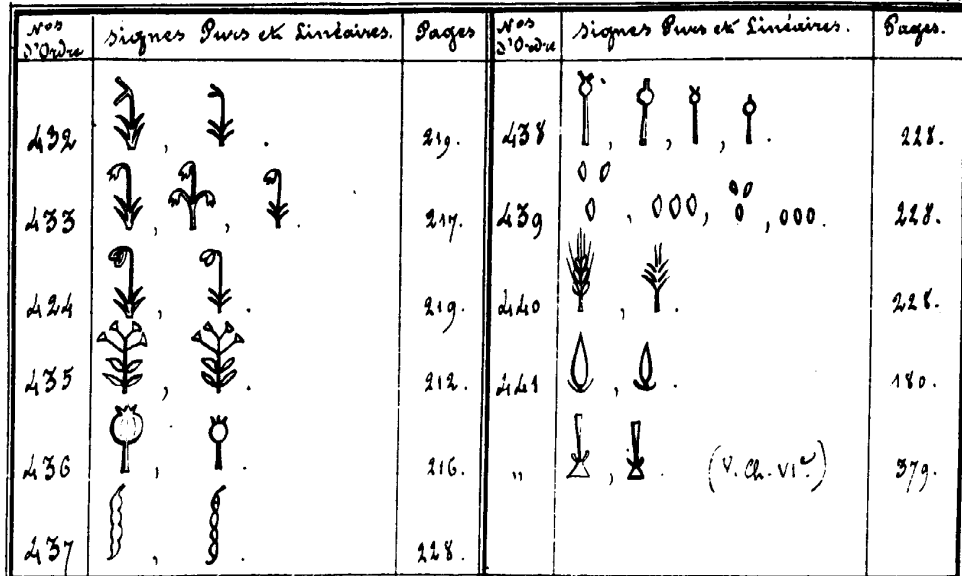 Nos d'Ordre Signes Purs et Linéaires. Pages
432 , . 219.
433 , , . 217.
424 , . 219.
435 , . 212.
436 , . 216.
437 , . 228.
Nos d'Ordre Signes Purs et Linéaires. Pages.
438 , , , . 228.
439 , , , . 228.
440 , . 228.
441 , . 180.
" , . (V. Ch. VIe) 379.